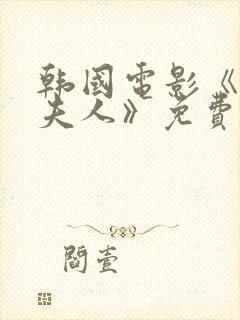 韩國電影《
夫人》免費
閻壹